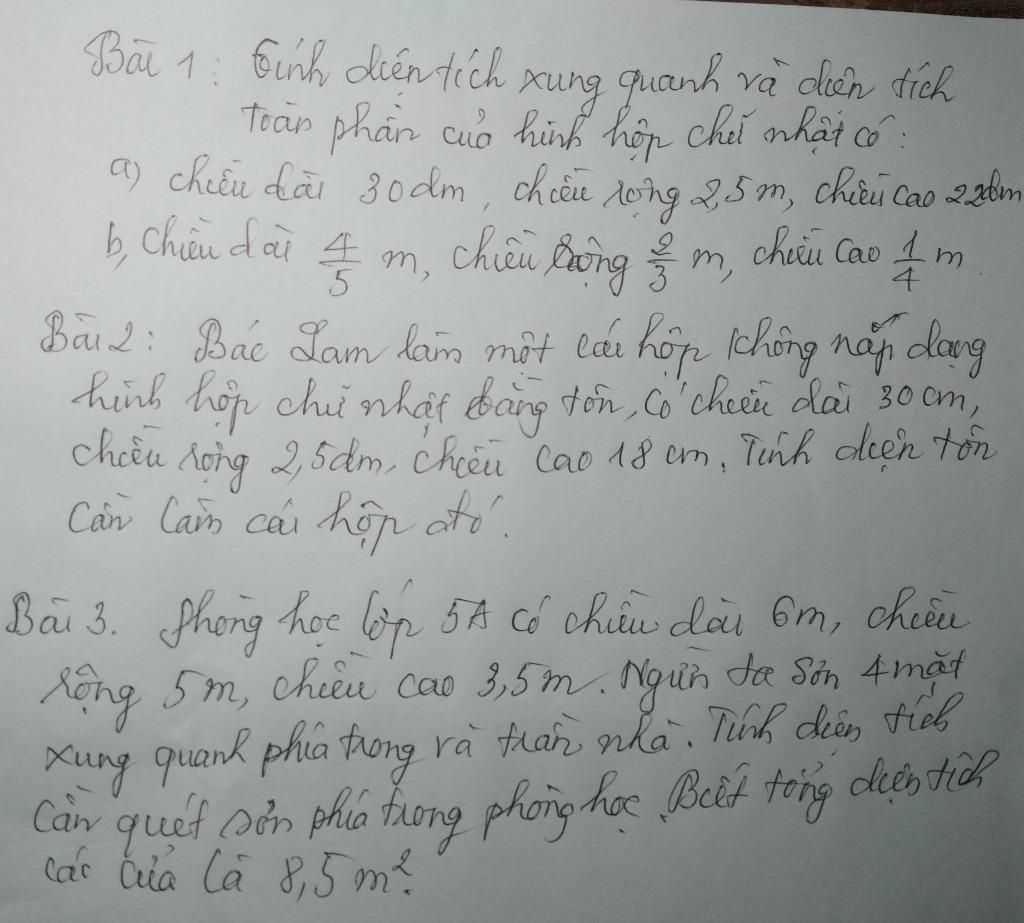 Bài 1: Tính diện tích xung quanh và diện tích
toàn phần của hình hộp chữ nhật có:
a) chiều dài 30dm, chiều rộng 2,5m, chiều cao 22dm
b, Chiều dài 4/5 m, chiều rộng 2/3 m, chiều cao 1/4 m
Bài 2: Bác Lam làm một cái hộp không nắp dạng
hình hộp chữ nhật bằng tôn, có chiều dài 30 cm,
chiều rộng 2,5dm, chiều cao 18 cm. Tính diện tôn
cần làm cái hộp đó.
Bài 3. Phòng học lớp 5A có chiều dài 6m, chiều
rộng 5m, chiều cao 3,5m. Người ta sơn 4 mặt
xung quanh phía trong và trần nhà. Tính diện tích
cần quét sơn phía trong phòng học. Biết tổng diện tích
các cửa là 8,5 m².